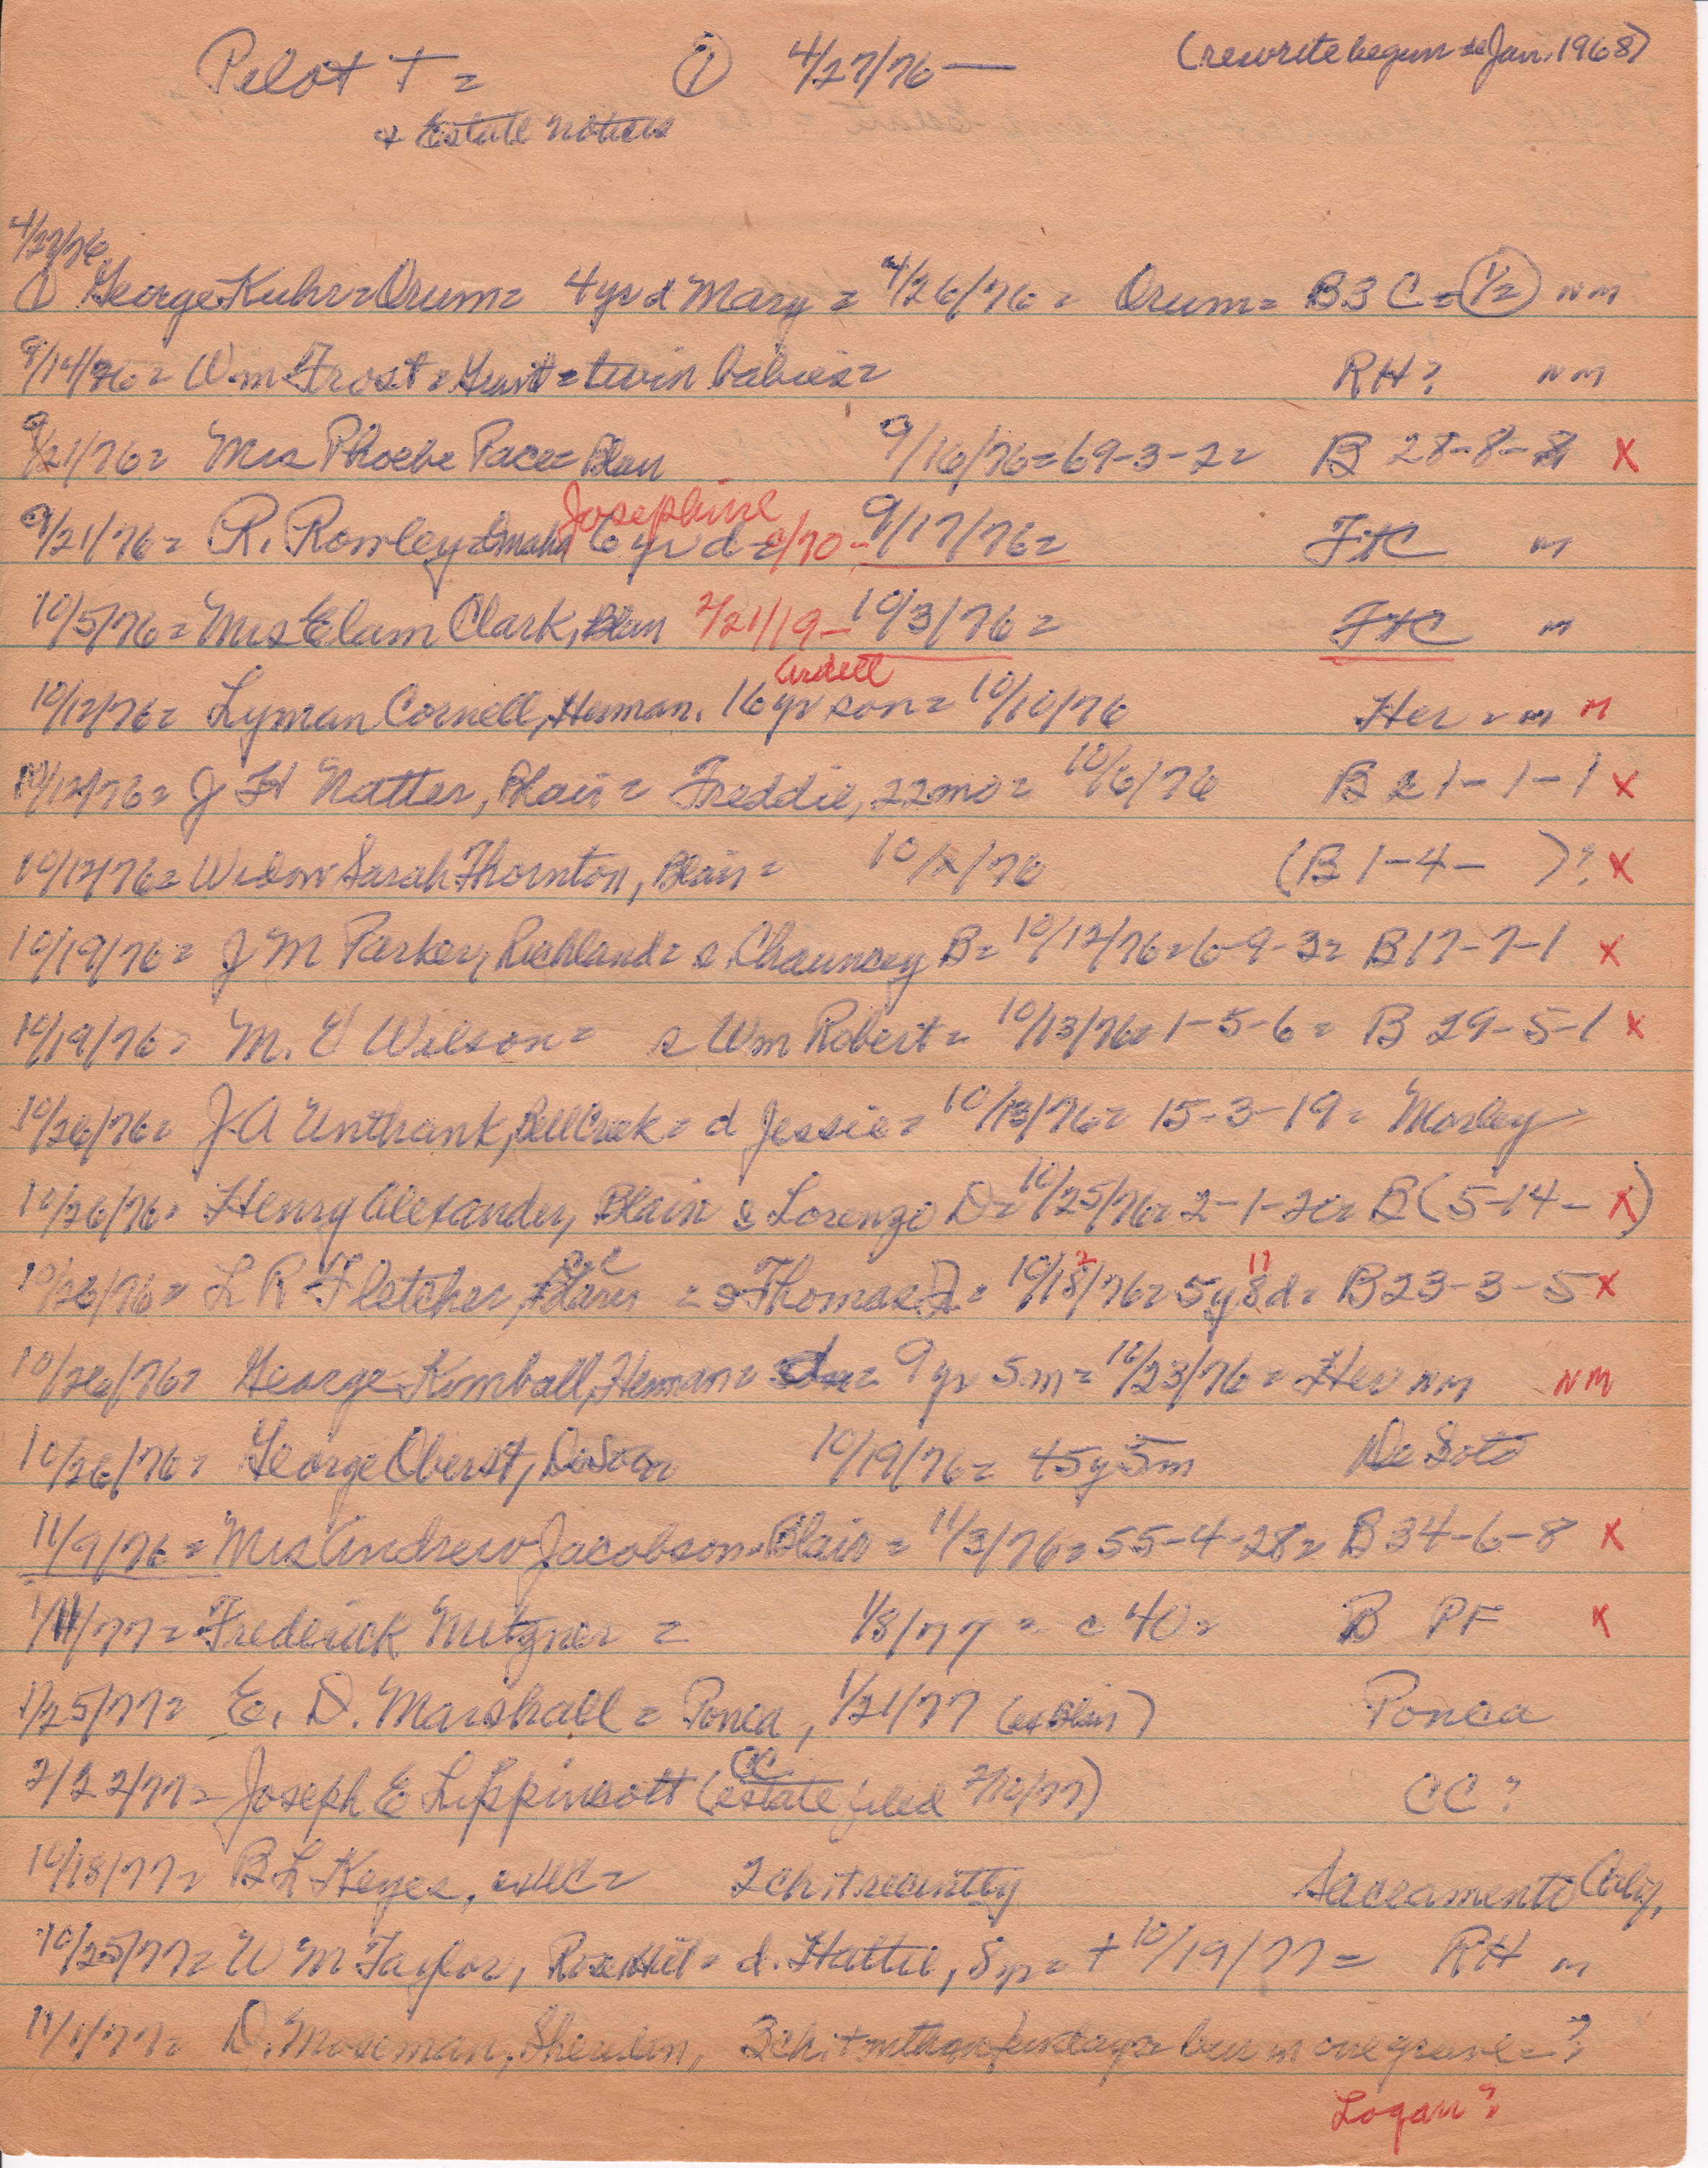 Pilot † = ① 4/27/76 — (rewrite begun Jan. 1968)
& Estate notices
4/27/76
① George Kuhr = Orum = 4 yr d Mary = 4/26/76 = Orum = B3 C = (1/2) nm
9/14/76 = Wm Frost = = twin babies = RH? nm
9/21/76 = Mrs Phoebe Pace = Blair 9/16/76 = 69-3-2 = B 28-8-8 x
Josephine
9/21/76 = R. Rowley = Omaha 6 yr d = 9/17/76 = FtC m
10/5/76 = Mrs Elam Clark, Blair 2/21/19 - 10/3/76 = FtC m
Ardell
10/12/76 = Lyman Cornell, Herman, 16 yr son = 10/10/76 Her = m m
10/12/76 = J H Natter, Blair = Freddie, 22 mo = 10/6/76 B 1-1-1 x
10/12/76 = Widow Sarah Thornton, Blair = 10/x/76 (B 1-4- )? x
10/19/76 = J M Parker, Richland = s. Chauncey B = 10/12/76 = 6-9-3 = B 17-7-1 x
10/19/76 = M. E Wilson = s Wm Robert = 10/13/76 = 1-5-6 = B 29-5-1 x
10/26/76 = J. A Unthank, Bell Creek = d Jessie = 10/13/76 = 15-3-19 = Mosley
10/26/76 = Henry Alexander, Blair s Lorenzo D = 10/25/76 = 2-1- = B (5-14- x)
CC 2 11
10/26/76 = L R Fletcher, = s Thomas J = 10/18/76 = 5y 8d = B 23-3-5 x
10/26/76 = George Kimball, Herman = = 9 yr 5m = 10/23/76 = Her nm nm
10/26/76 = George Oberst, DeSoto 10/19/76 = 45y 5m De Soto
11/9/76 = Mrs Andrew Jacobson = Blair = 11/3/76 = 55-4-28 = B 34-6-8 x
1/11/77 = Frederick Metzner = 1/8/77 = c 40 = B PF x
1/25/77 = E. D. Marshall = Ponca, 1/21/77 (ex Blair) Ponca
CC
2/22/77 = Joseph E Lippincott (estate filed 2/12/77) CC?
10/18/77 = B L Keyes, = 2 ch † recently Sacramento Calif.
10/25/77 = W M Taylor, Rose Hill = d. Hattie, 8 yr = † 10/19/77 = RH m
11/1/77 = D. Moseman, Sheridan, 3 ch. † within few days = bur in one grave = ?
Logan?